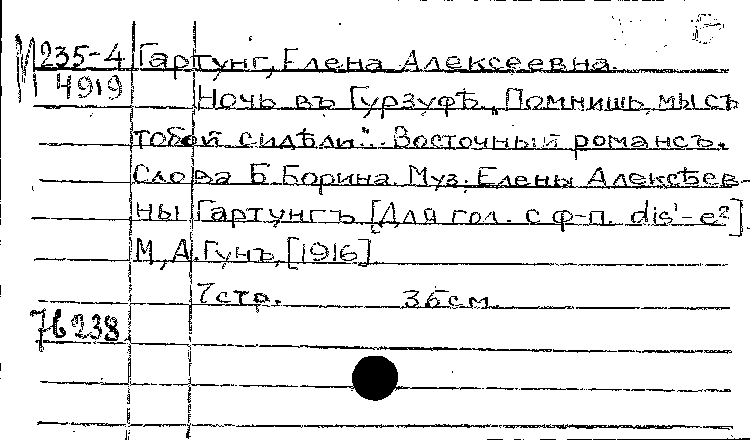 М 235-4 Гартунг, Елена Алексеевна.
4919 Ночь въ Гурзуфѣ. „Помнишь, мы съ
тобой сидѣли“.. Восточный романсъ.
Слова Б. Борина. Муз. Елены Алексѣев-
ны Гартунгъ. [Для гол. с ф-п. dis¹-e²]
М., А. Гунъ, [1916]
7 стр. 36 см.
76238